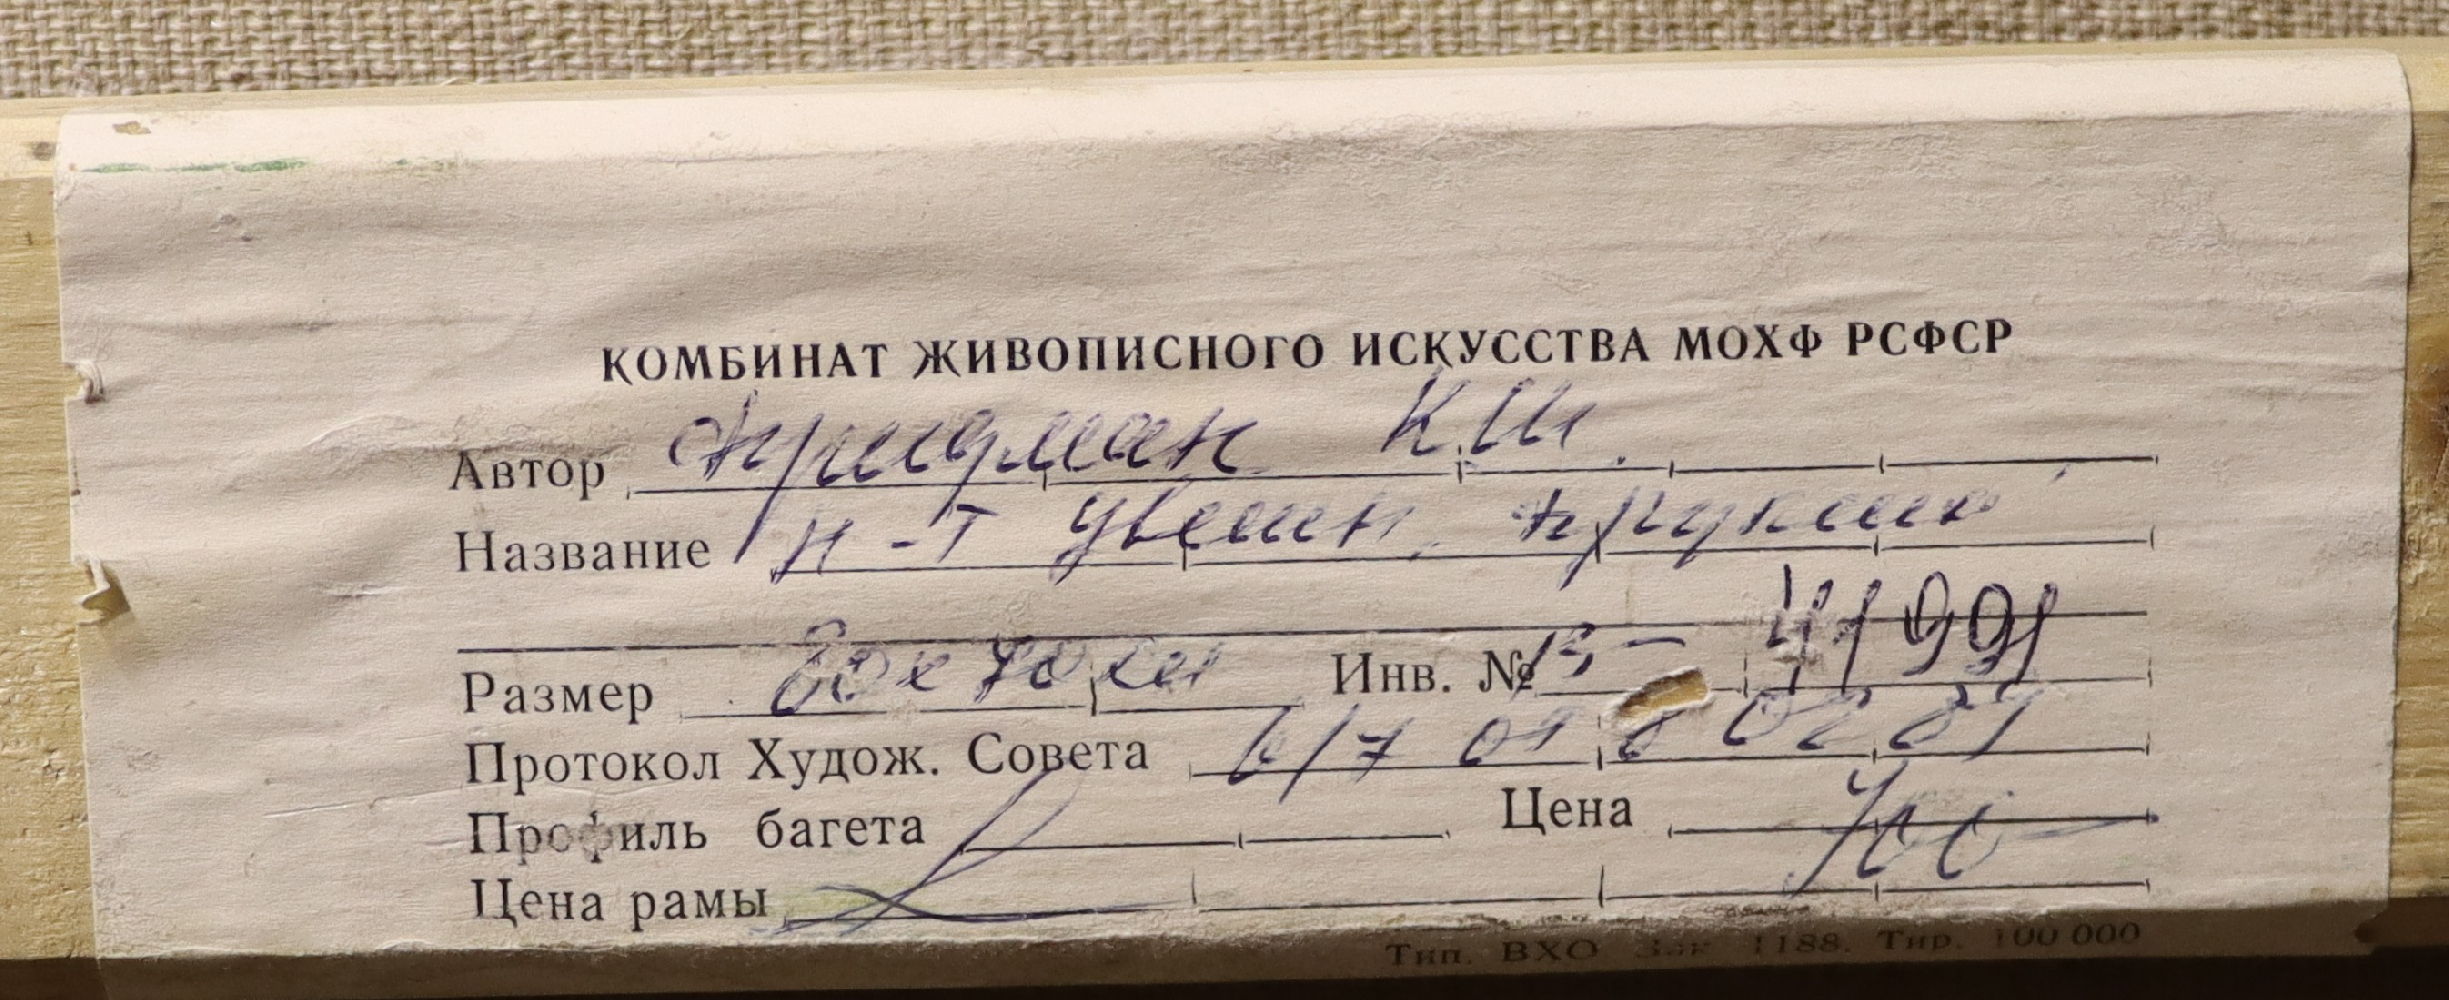 КОМБИНАТ ЖИВОПИСНОГО ИСКУССТВА МОХФ РСФСР
Автор Фридман К.Ш.
Название Н-т
Размер 80х70 см Инв. № 41991
Протокол Худож. Совета 6/7
Профиль багета Цена
Цена рамы
Тип. ВХО Зак 1188. Тир. 100 000